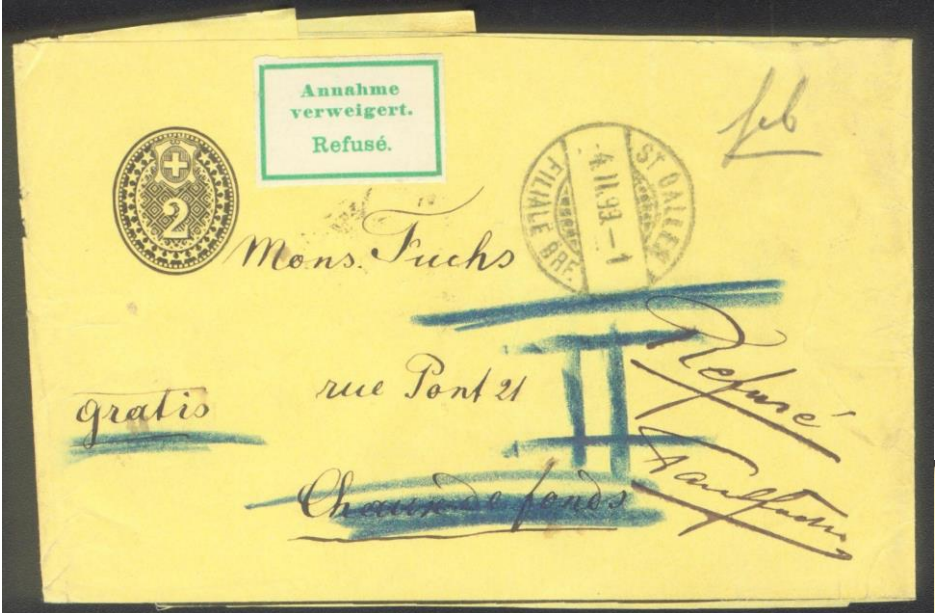 Annahme
verweigert.
Refusé.
2
ST. GALLEN
4.II.93.-1
FILIALE BRF.
Mons. Fuchs
rue Pont 21
gratis
Chaux de fonds
II
Refusé